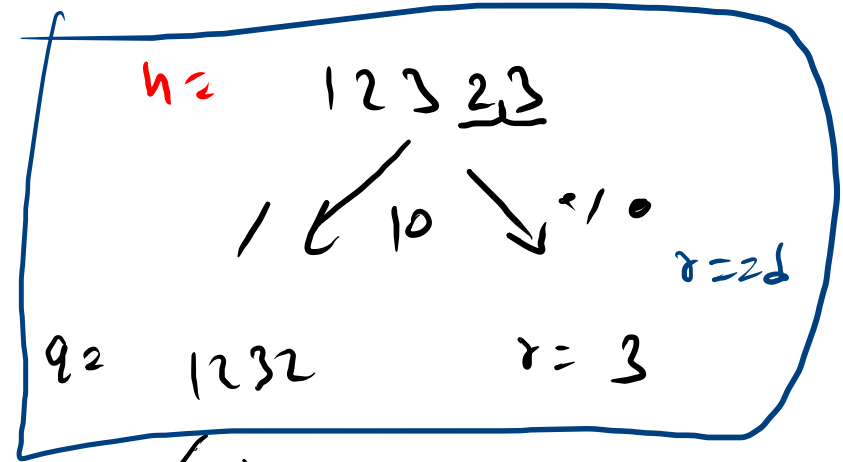 n = 12323
/ 10 %
r == d
q = 1232 r = 3